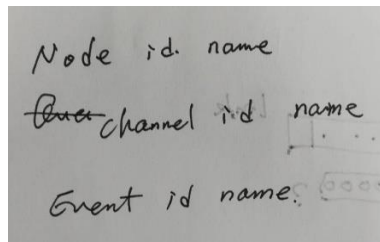 Node id. name
channel id name
Event id name.